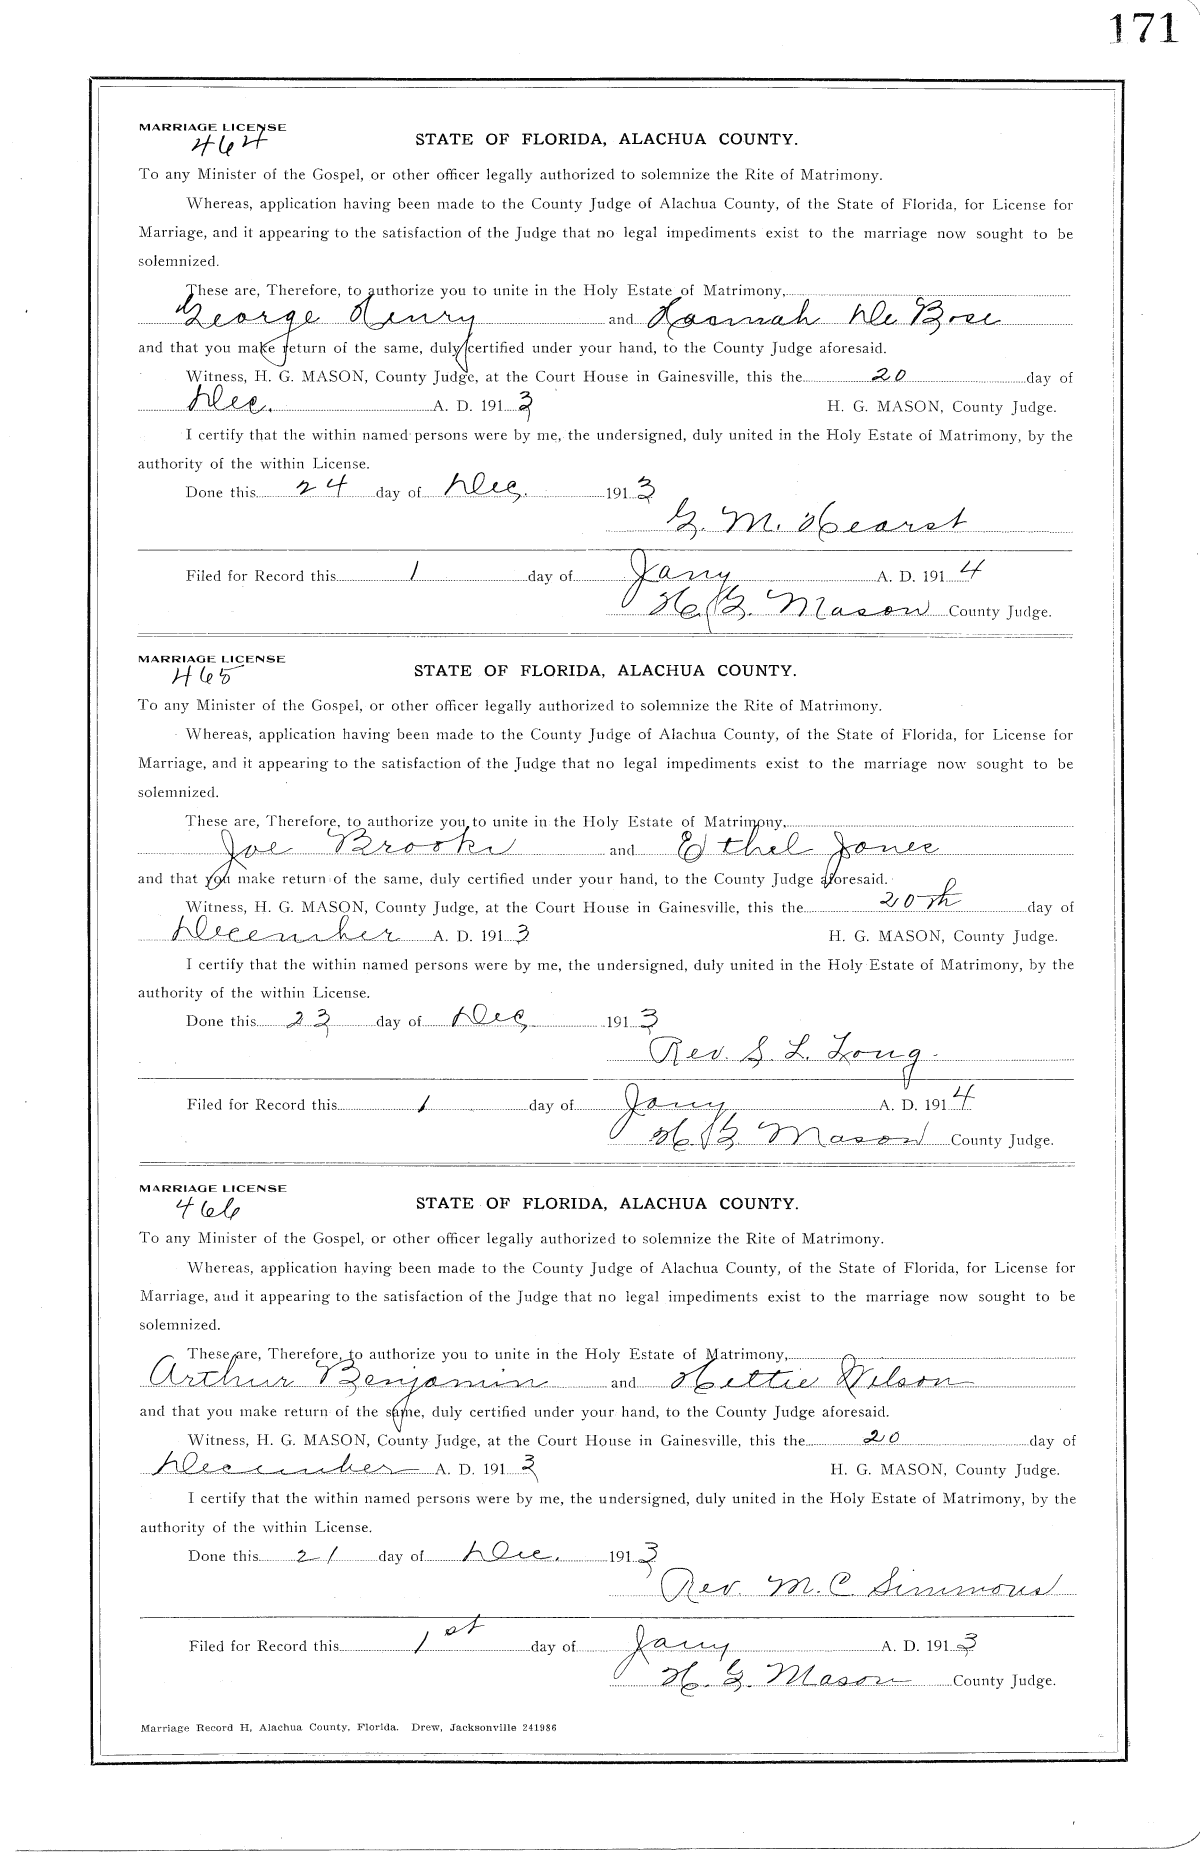 171
MARRIAGE LICENSE
464
STATE OF FLORIDA, ALACHUA COUNTY.
To any Minister of the Gospel, or other officer legally authorized to solemnize the Rite of Matrimony.
Whereas, application having been made to the County Judge of Alachua County, of the State of Florida, for License for
Marriage, and it appearing to the satisfaction of the Judge that no legal impediments exist to the marriage now sought to be
solemnized.
These are, Therefore, to authorize you to unite in the Holy Estate of Matrimony,
George Henry and Hannah De Bose
and that you make return of the same, duly certified under your hand, to the County Judge aforesaid.
Witness, H. G. MASON, County Judge, at the Court House in Gainesville, this the 20 day of
Dec. A. D. 1913 H. G. MASON, County Judge.
I certify that the within named persons were by me, the undersigned, duly united in the Holy Estate of Matrimony, by the
authority of the within License.
Done this 24 day of Dec. 1913
G. M. Hearst
Filed for Record this 1 day of Jany A. D. 1914
H. G. Mason County Judge.
MARRIAGE LICENSE
465
STATE OF FLORIDA, ALACHUA COUNTY.
To any Minister of the Gospel, or other officer legally authorized to solemnize the Rite of Matrimony.
Whereas, application having been made to the County Judge of Alachua County, of the State of Florida, for License for
Marriage, and it appearing to the satisfaction of the Judge that no legal impediments exist to the marriage now sought to be
solemnized.
These are, Therefore, to authorize you to unite in the Holy Estate of Matrimony,
Joe Brooks and Ethel Jones
and that you make return of the same, duly certified under your hand, to the County Judge aforesaid.
Witness, H. G. MASON, County Judge, at the Court House in Gainesville, this the 20th day of
December A. D. 1913 H. G. MASON, County Judge.
I certify that the within named persons were by me, the undersigned, duly united in the Holy Estate of Matrimony, by the
authority of the within License.
Done this 23 day of Dec 1913
Rev. S. L. Long.
Filed for Record this 1 day of Jany A. D. 1914
H. G Mason County Judge.
MARRIAGE LICENSE
466
STATE OF FLORIDA, ALACHUA COUNTY.
To any Minister of the Gospel, or other officer legally authorized to solemnize the Rite of Matrimony.
Whereas, application having been made to the County Judge of Alachua County, of the State of Florida, for License for
Marriage, and it appearing to the satisfaction of the Judge that no legal impediments exist to the marriage now sought to be
solemnized.
These are, Therefore, to authorize you to unite in the Holy Estate of Matrimony,
Arthur Benjamin and Hettie Wilson
and that you make return of the same, duly certified under your hand, to the County Judge aforesaid.
Witness, H. G. MASON, County Judge, at the Court House in Gainesville, this the 20 day of
December A. D. 1913 H. G. MASON, County Judge.
I certify that the within named persons were by me, the undersigned, duly united in the Holy Estate of Matrimony, by the
authority of the within License.
Done this 21 day of Dec. 1913
Rev. M. C Simmons
Filed for Record this 1st day of Jany A. D. 1913
H. G. Mason County Judge.
Marriage Record H, Alachua County, Florida. Drew, Jacksonville 241986